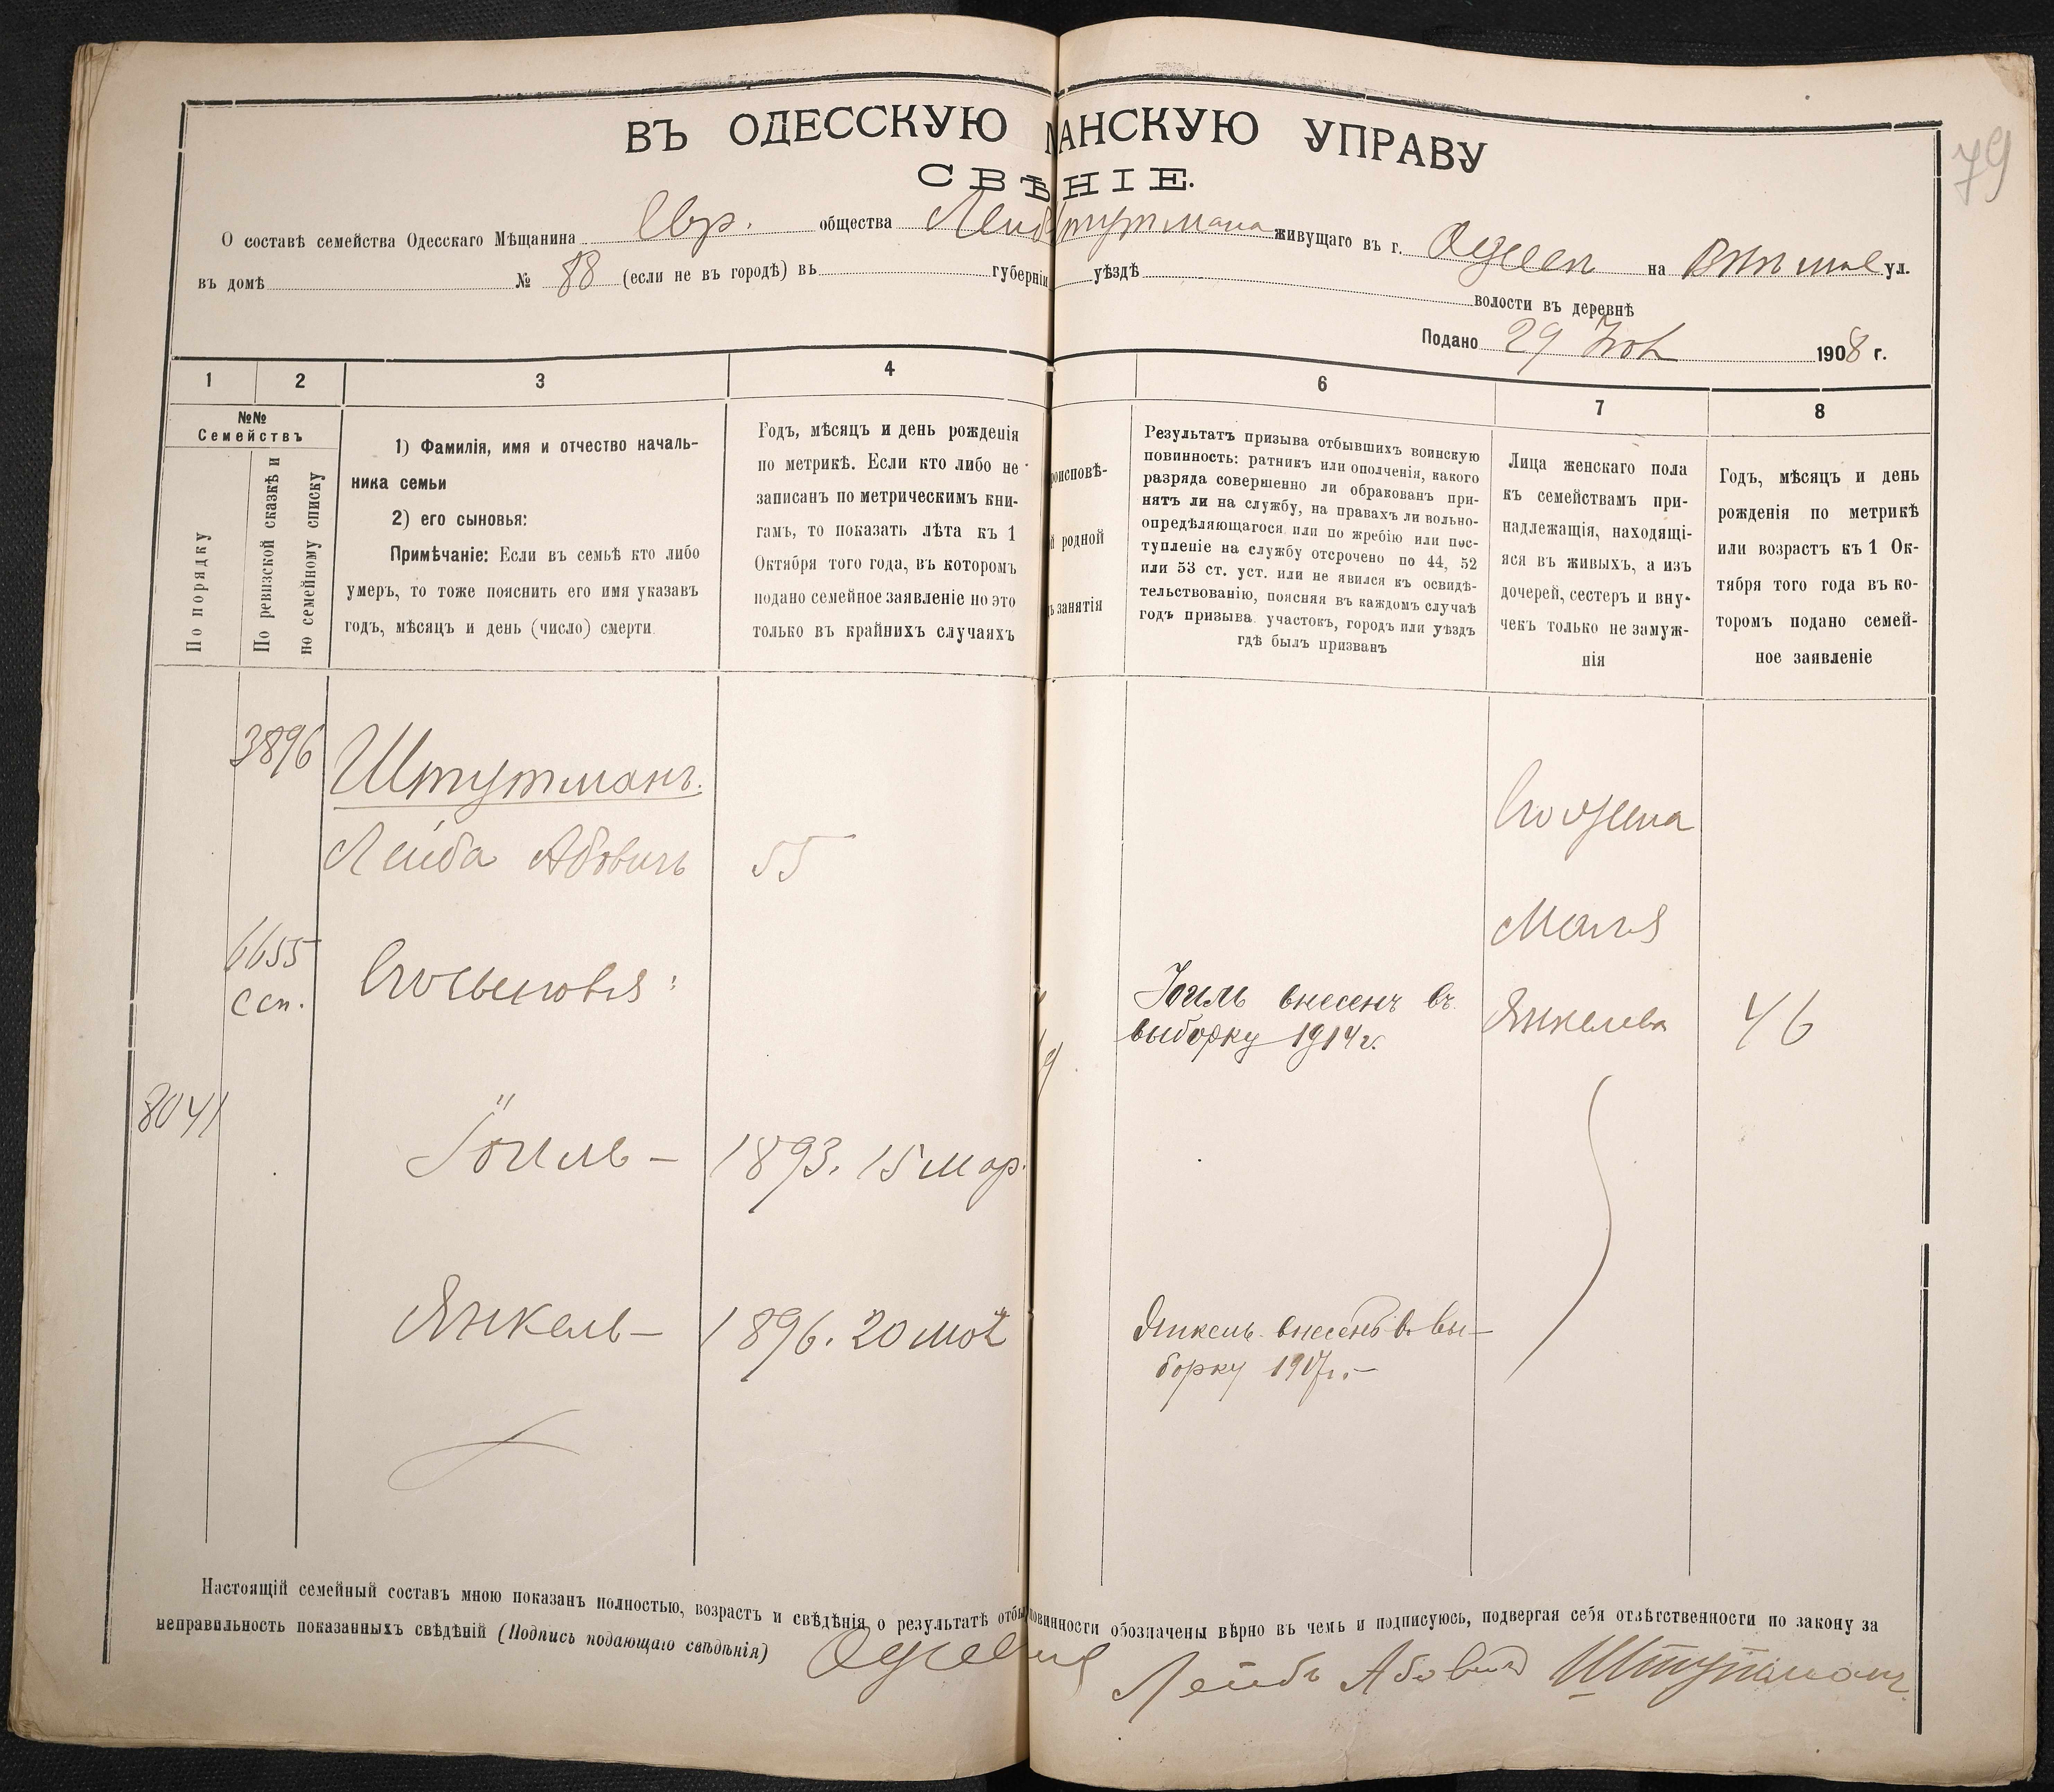 79
ВЪ ОДЕССКУЮ АНСКУЮ УПРАВУ
СВѢНІЕ.
О составѣ семейства Одесскаго Мѣщанина Евр. общества Лейб Штутмана живущаго въ г. Одессѣ на ул.
въ домѣ № 88 (если не въ городѣ) въ губерніи уѣздѣ
волости въ деревнѣ
Подано 29 1908 г.
1 2 3 4 6 7 8
№№
Семействъ
По порядку
По ревизской сказкѣ и
по семейному списку
1) Фамилія, имя и отчество началь-
ника семьи
2) его сыновья:
Примѣчаніе: Если въ семьѣ кто либо
умеръ, то тоже пояснить его имя указавъ
годъ, мѣсяцъ и день (число) смерти
Годъ, мѣсяцъ и день рожденія
по метрикѣ. Если кто либо не
записанъ по метрическимъ кни-
гамъ, то показать лѣта къ 1
Октября того года, въ которомъ
подано семейное заявленіе но это
только въ крайнихъ случаяхъ
роисповѣ-
й родной
ъ занятія
Результатъ призыва отбывшихъ воинскую
повинность: ратникъ или ополченія, какого
разряда совершенно ли обракованъ при-
нятъ ли на службу, на правахъ ли вольно-
опредѣляющагося или по жребію или пос-
тупленіе на службу отсрочено по 44, 52
или 53 ст. уст. или не явился къ освидѣ-
тельствованію, поясняя въ каждомъ случаѣ
годъ призыва участокъ, городъ или уѣздъ
гдѣ былъ призванъ
Лица женскаго пола
къ семействамъ при-
надлежащія, находящі-
яся въ живыхъ, а изъ
дочерей, сестеръ и вну-
чекъ только не замуж-
нія
Годъ, мѣсяцъ и день
рожденія по метрикѣ
или возрастъ къ 1 Ок-
тября того года въ ко-
торомъ подано семей-
ное заявленіе
3896 Штутманъ.
Лейба Абовичъ 55
Его жена
Маля
Янкелева 46
6655
с сп.
Его сыновья:
Юиль внесенъ въ
выборку 1914 г.
8041
Іоиль – 1893. 15 мар.
Янкель – 1896. 20 моя
Янкель внесенъ въ вы-
борку 1917 г. –
Настоящій семейный составъ мною показанъ полностью, возрастъ и свѣдѣнія о результатѣ отбы повинности обозначены вѣрно въ чемъ и подписуюсь, подвергая себя отвѣтственности по закону за
неправильность показанныхъ свѣдѣній (Подпись подающаго свѣдѣнія)
Лейбъ Абовичъ Штутманъ